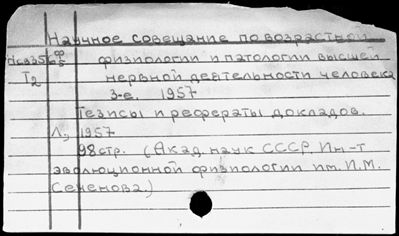 Научное совещание по возрастной
физиологии и патологии высшей
Т2 нервной деятельности человека
3-е. 1957
Тезисы и рефераты докладов.
Л., 1957
98стр. (Акад. наук СССР. Ин-т
эволюционной физиологии им. И.М.
Сеченова.)